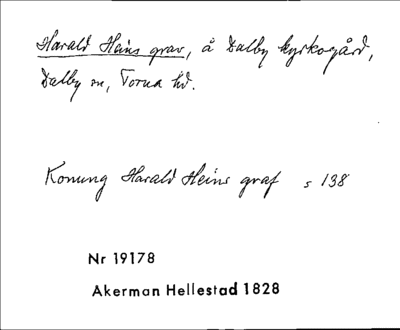 Harald Heins grav, å Dalby kyrkogård,
Dalby sn, Torna hd.
Konung Harald Heins graf s 138
Nr 19178
Akerman Hellestad 1828